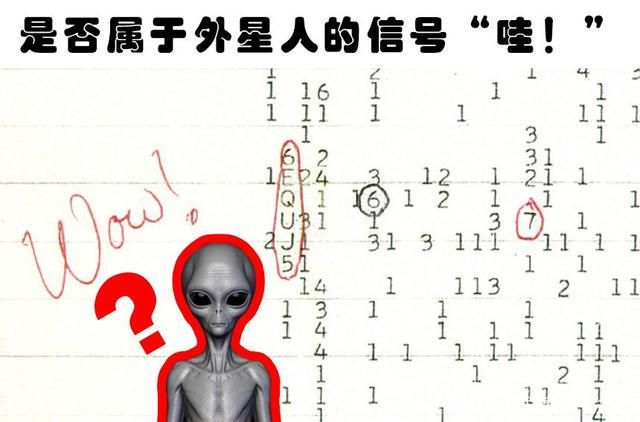 是否属于外星人的信号“哇！”
1 2 1 4 3
1 16 1 1 1
1 11 1 1 11 1
1 3 1
6 2 31
1 E 24 3 12 1 21 1
Q 1 1 6 1 2 1 1 1
Wow!
U 31 1 3 7 1
2 J 1 31 3 111 11 1 1 1
5 1 1 1
14 1 113 2 11
?
1 3 1 1 1
1 4 1 1 1 11
4 1 1 1 11 1 111
1 1 2 1
1 1 1 1 1
1 1 14